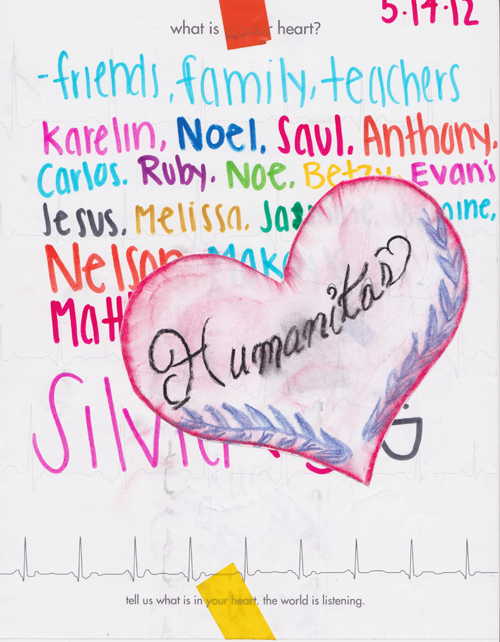 5.14.12
what is heart?
-friends, family, teachers
Karelin, Noel, Saul, Anthony,
Carlos. Ruby. Noe. Betzy. Evan's
Jesus. Melissa.
Nelson
Humanitas
tell us what is in your heart. the world is listening.